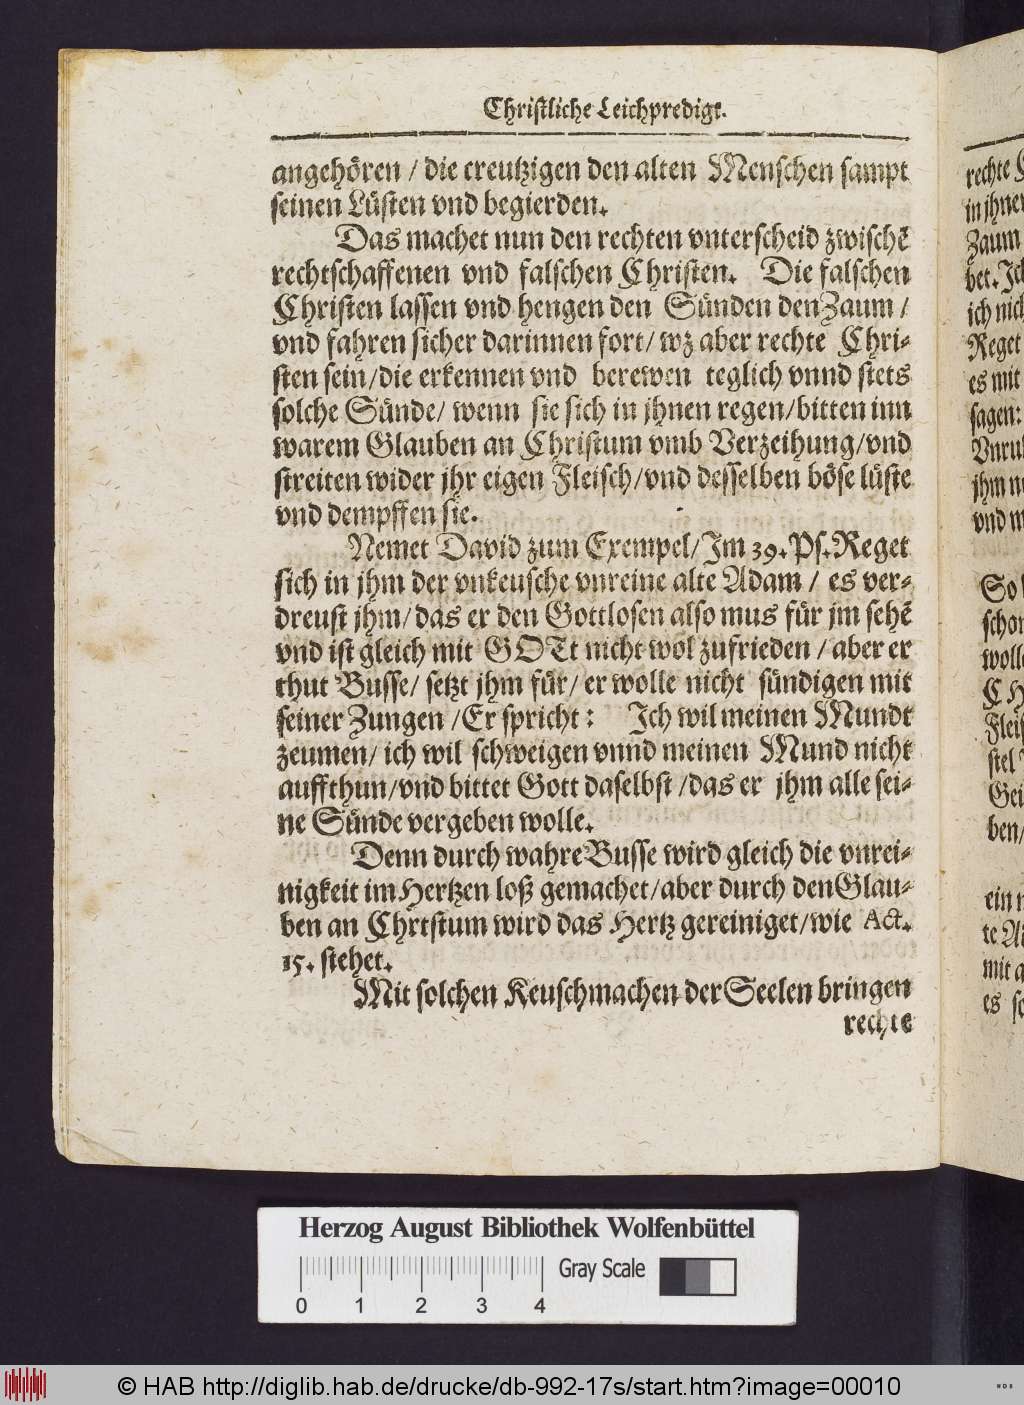 Christliche Leichpredigt.
angehören / die creutzigen den alten Menschen sampt
seinen Lüsten vnd begierden.
Das machet nun den rechten vnterscheid zwischẽ
rechtschaffenen vnd falschen Christen. Die falschen
Christen lassen vnd hengen den Sünden den Zaum /
vnd fahren sicher darinnen fort/ wz aber rechte Chri-
sten sein/die erkennen vnd berewen teglich vnnd stets
solche Sünde/ wenn sie sich in jhnen regen/bitten inn
warem Glauben an Christum vmb Verzeihung/vnd
streiten wider jhr eigen Fleisch/vnd desselben böse lüste
vnd dempffen sie.
Nemet David zum Exempel/Im 39. Ps. Reget
sich in jhm der vnkeusche vnreine alte Adam / es ver-
dreust jhm/das er den Gottlosen also mus für jm sehẽ
vnd ist gleich mit GOTt nicht wol zufrieden / aber er
thut Busse/ setzt jhm für/ er wolle nicht sündigen mit
seiner Zungen /Er spricht: Ich wil meinen Mundt
zeumen/ ich wil schweigen vnnd meinen Mund nicht
auffthun/vnd bittet Gott daselbst /das er jhm alle sei-
ne Sünde vergeben wolle.
Denn durch wahre Busse wird gleich die vnrei-
nigkeit im Hertzen loß gemachet/aber durch den Glau-
ben an Chrtstum wird das Hertz gereiniget/wie Act.
15. stehet.
Mit solchen Keuschmachen der Seelen bringen
rechte
rechte
in jhne
Zaum
bet. Ich
ich nich
Reget
es mit
sagen:
Vnru
jhm
vnd
So
schon
wolle
C H
Fleis
stel
Gei
ben/
ein
te
mit
es so
Herzog August Bibliothek Wolfenbüttel
Gray Scale
0 1 2 3 4
© HAB http://diglib.hab.de/drucke/db-992-17s/start.htm?image=00010